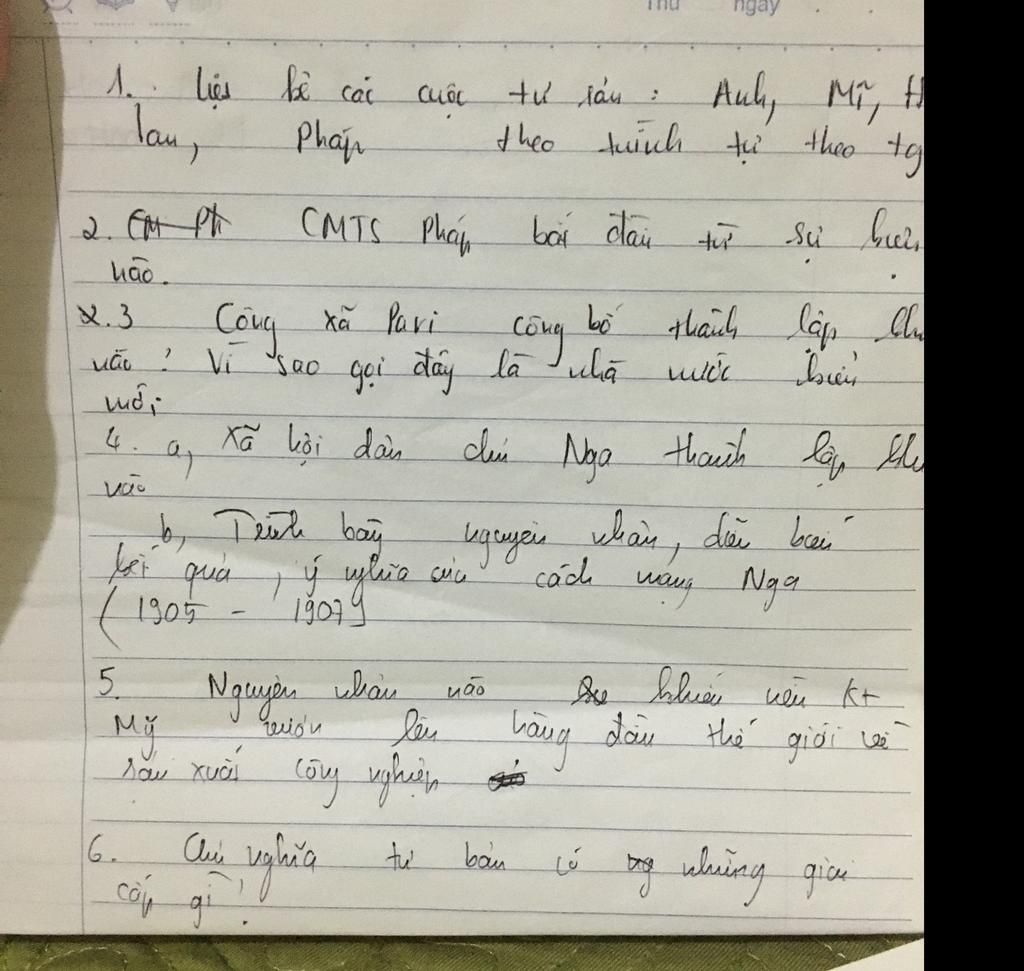 Thứ ngày
1. Liệt kê các cuộc tư sản : Anh, Mĩ,
lan, Pháp theo trình tự theo tg
2. CMTS Pháp bắt đầu từ sự
nào.
3 Công xã Pari công bố thành lập
nào ? Vì sao gọi đây là nhà nước kiểu
mới
4. a, Xã hội dân chủ Nga thành lập
nào
b, Trình bày nguyên nhân, diễn biến
kết quả, ý nghĩa của cách mạng Nga
(1905 - 1907)
5. Nguyên nhân nào khiến nền kt
Mỹ vươn lên hàng đầu thế giới về
sản xuất công nghiệp
6. Chủ nghĩa tư bản có những giai
cấp gì ?